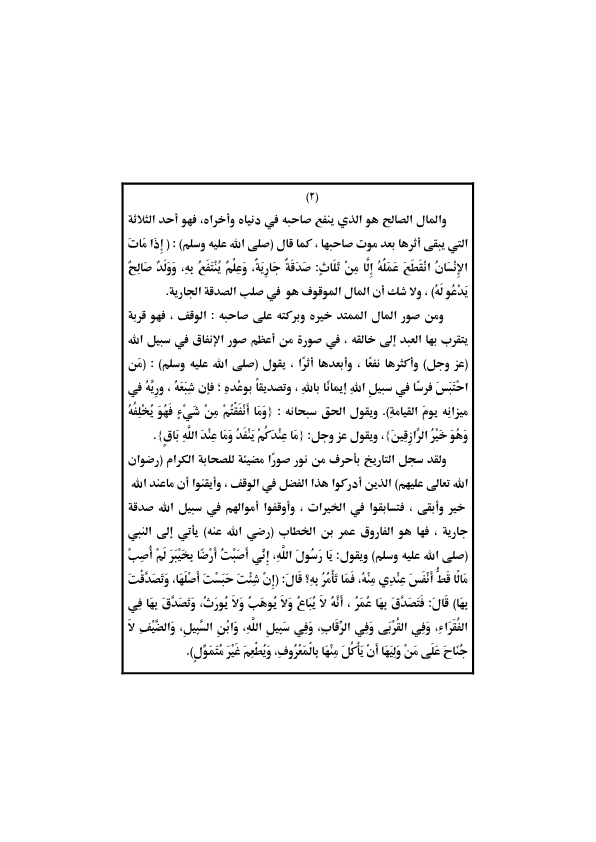 (٢)
والمال الصالح هو الذي ينفع صاحبه في دنياه وأخراه، فهو أحد الثلاثة
التي يبقى أثرها بعد موت صاحبها ، كما قال (صلى الله عليه وسلم) : ( إِذَا مَاتَ
الإِنْسَانُ انْقَطَعَ عَمَلُهُ إِلَّا مِنْ ثَلَاثٍ: صَدَقَةٌ جَارِيَةٌ، وَعِلْمٌ يُنْتَفَعُ بِهِ، وَوَلَدٌ صَالِحٌ
يَدْعُو لَهُ) ، ولا شك أن المال الموقوف هو في صلب الصدقة الجارية.
ومن صور المال الممتد خيره وبركته على صاحبه : الوقف ، فهو قربة
يتقرب بها العبد إلى خالقه ، في صورة من أعظم صور الإنفاق في سبيل الله
(عز وجل) وأكثرها نفعًا ، وأبعدها أثرًا ، يقول (صلى الله عليه وسلم) : (مَن
احْتَبَسَ فرسًا في سبيلِ اللهِ إيمانًا باللهِ ، وتصديقاً بوعْدهِ ؛ فإن شِبَعَهُ ، ورِيَّهُ في
ميزانِه يومَ القيامةِ). ويقول الحق سبحانه : {وَمَا أَنْفَقْتُمْ مِنْ شَيْءٍ فَهُوَ يُخْلِفُهُ
وَهُوَ خَيْرُ الرَّازِقِينَ}، ويقول عز وجل: {مَا عِنْدَكُمْ يَنْفَدُ وَمَا عِنْدَ اللَّهِ بَاقٍ}.
ولقد سجل التاريخ بأحرف من نور صورًا مضيئة للصحابة الكرام (رضوان
الله تعالى عليهم) الذين أدركوا هذا الفضل في الوقف ، وأيقنوا أن ماعند الله
خير وأبقى ، فتسابقوا في الخيرات ، وأوقفوا أموالهم في سبيل الله صدقة
جارية ، فها هو الفاروق عمر بن الخطاب (رضي الله عنه) يأتي إلى النبي
(صلى الله عليه وسلم) ويقول: يَا رَسُولَ اللَّهِ، إِنِّي أَصَبْتُ أَرْضًا بِخَيْبَرَ لَمْ أُصِبْ
مَالًا قَطُّ أَنْفَسَ عِنْدِي مِنْهُ، فَمَا تَأْمُرُ بِهِ؟ قَالَ: (إِنْ شِئْتَ حَبَسْتَ أَصْلَهَا، وَتَصَدَّقْتَ
بِهَا) قَالَ: فَتَصَدَّقَ بِهَا عُمَرُ ، أَنَّهُ لاَ يُبَاعُ وَلاَ يُوهَبُ وَلاَ يُورَثُ، وَتَصَدَّقَ بِهَا فِي
الفُقَرَاءِ، وَفِي القُرْبَى وَفِي الرِّقَابِ، وَفِي سَبِيلِ اللَّهِ، وَابْنِ السَّبِيلِ، وَالضَّيْفِ لاَ
جُنَاحَ عَلَى مَنْ وَلِيَهَا أَنْ يَأْكُلَ مِنْهَا بِالْمَعْرُوفِ، وَيُطْعِمَ غَيْرَ مُتَمَوِّلٍ).